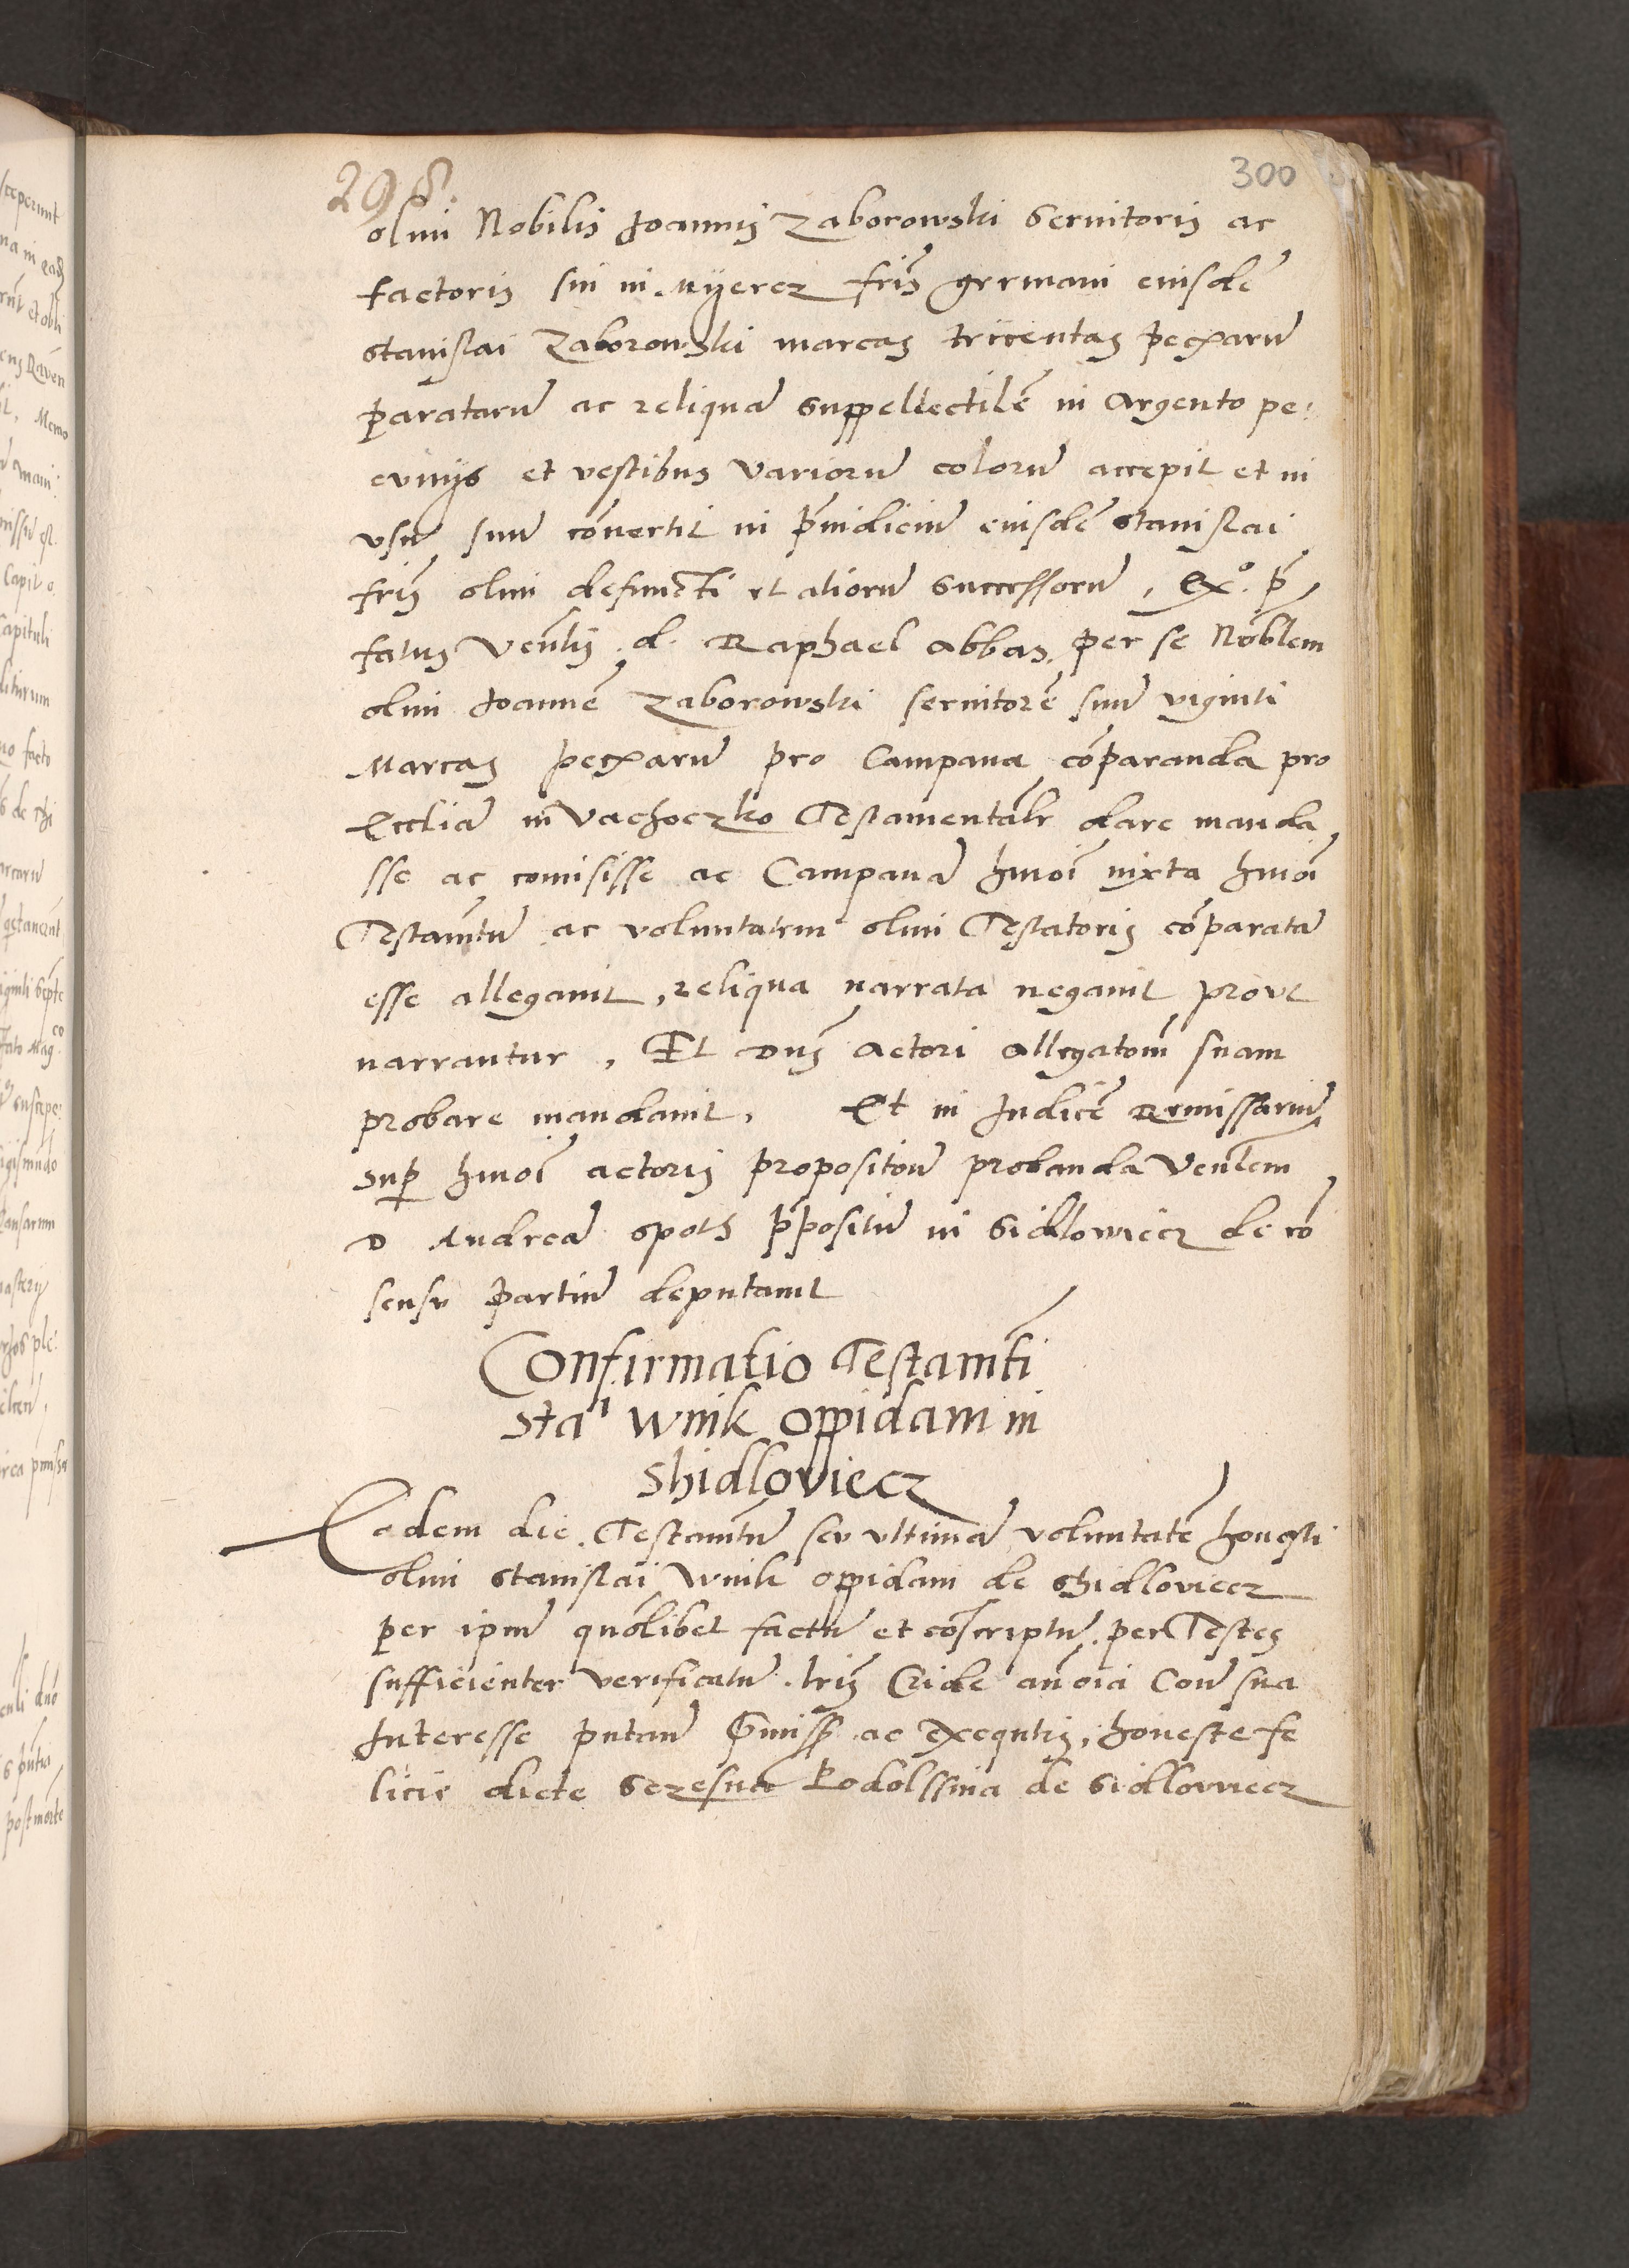 298.
300
olim Nobilis Joannis Zaborowski Servitoris ac
factoris sui in Myerez fr̃is germani eiusdẽ
Stanislai Zaborowski marcas tricentas pecũarũ
paratarũ ac reliquã suppellectilẽ in Argento pe:
cunijs et vestibus variorũ colorũ accepit et in
usũ suũ cõvertit in p̃iudiciũ eiusdẽ Stanislai
fr̃is olim defuncti et aliorũ successorũ, Exº. p̃
fatus Ven̄lis d. Raphael Abbas. per se Nob̃lem
olim Joannẽ Zaborowski servitorẽ suũ viginti
Marcas pecũarũ pro Campana cõparanda pro
Ecc̃liã in Vachoczko Testamentãlr dare manda
sse ac comisisse ac Campanã hmõi iuxta hmõi
Testam̃tũ ac voluntatem olim Testatoris cõparatã
esse allegavit, reliqua narrata negavit prout
narrantur, Et Dñs Actori allegatõm suam
probare mandavit, Et in Judicẽ Remissariũ
sup hmõi actoris propositõne probanda Ven̄lem
D Andreã Spoth p̃positũ in Sidlowiecz de cõ
sensu partiũ deputavit
Confirmatio Testam̃ti
Stai Wnik oppidani in
Shidloviecz
Eadem die Testam̃tũ seu ultimã voluntatẽ honesti
olim Stanislai Wnik oppidani de Shidloviecz
per ipm̃ quõlibet factũ et cõscriptũ. per Testes
sufficienter verificatũ. lr̃is Cride an̄ oĩa Coñ sua
Interesse putan̄ ac exeqũtis, honeste fe
licis dicte Podolssina de Sidlowiecz